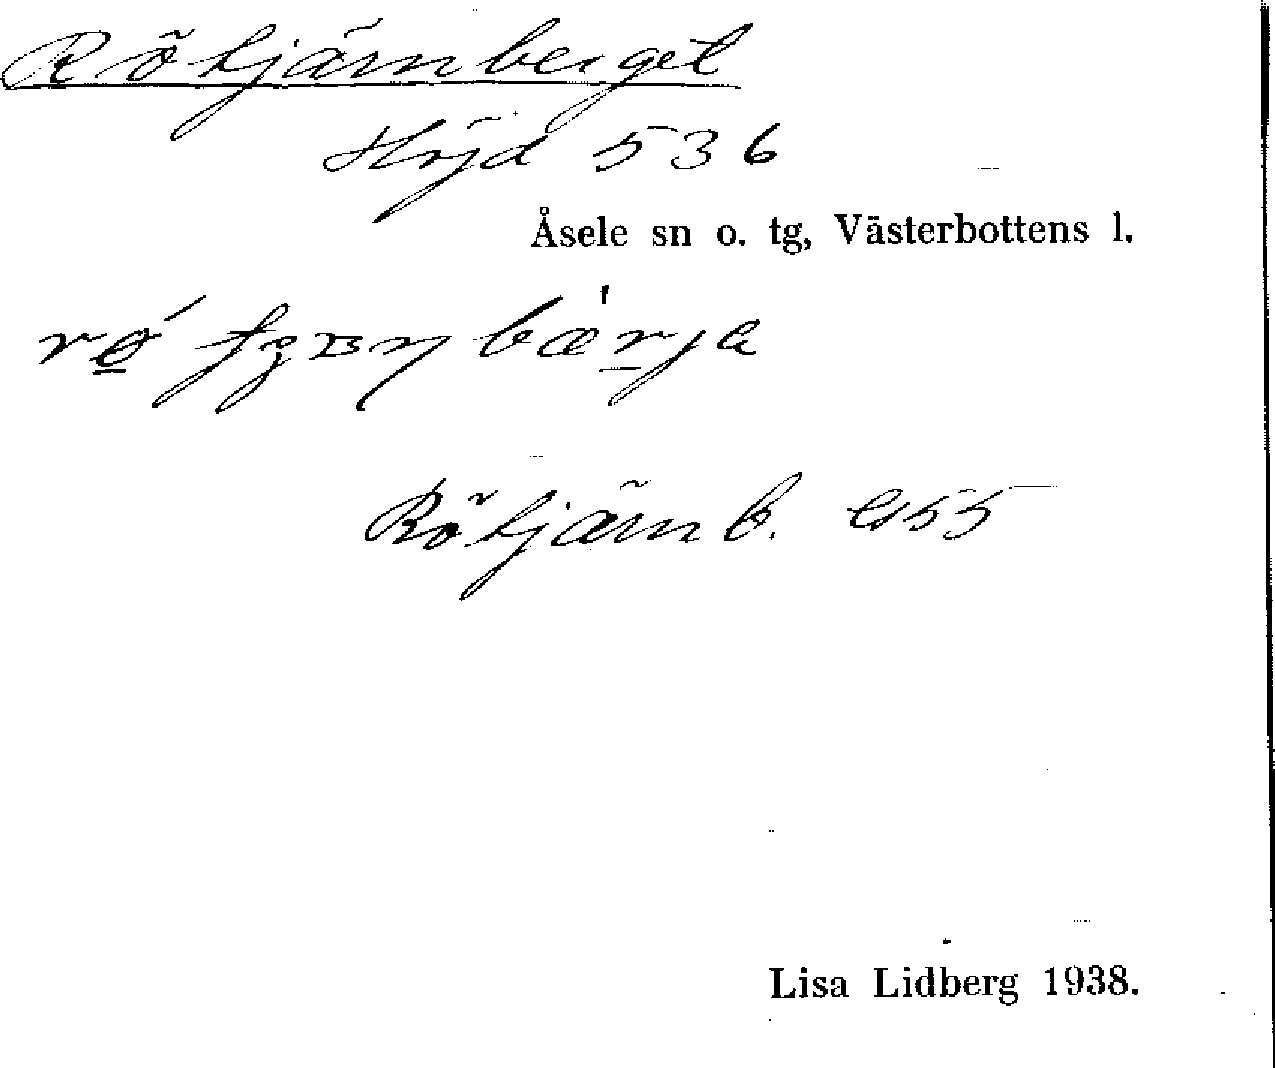 Rötjärnberget
Höjd 536
Åsele sn o. tg, Västerbottens l.
Rötjärnb. G55
Lisa Lidberg 1938.